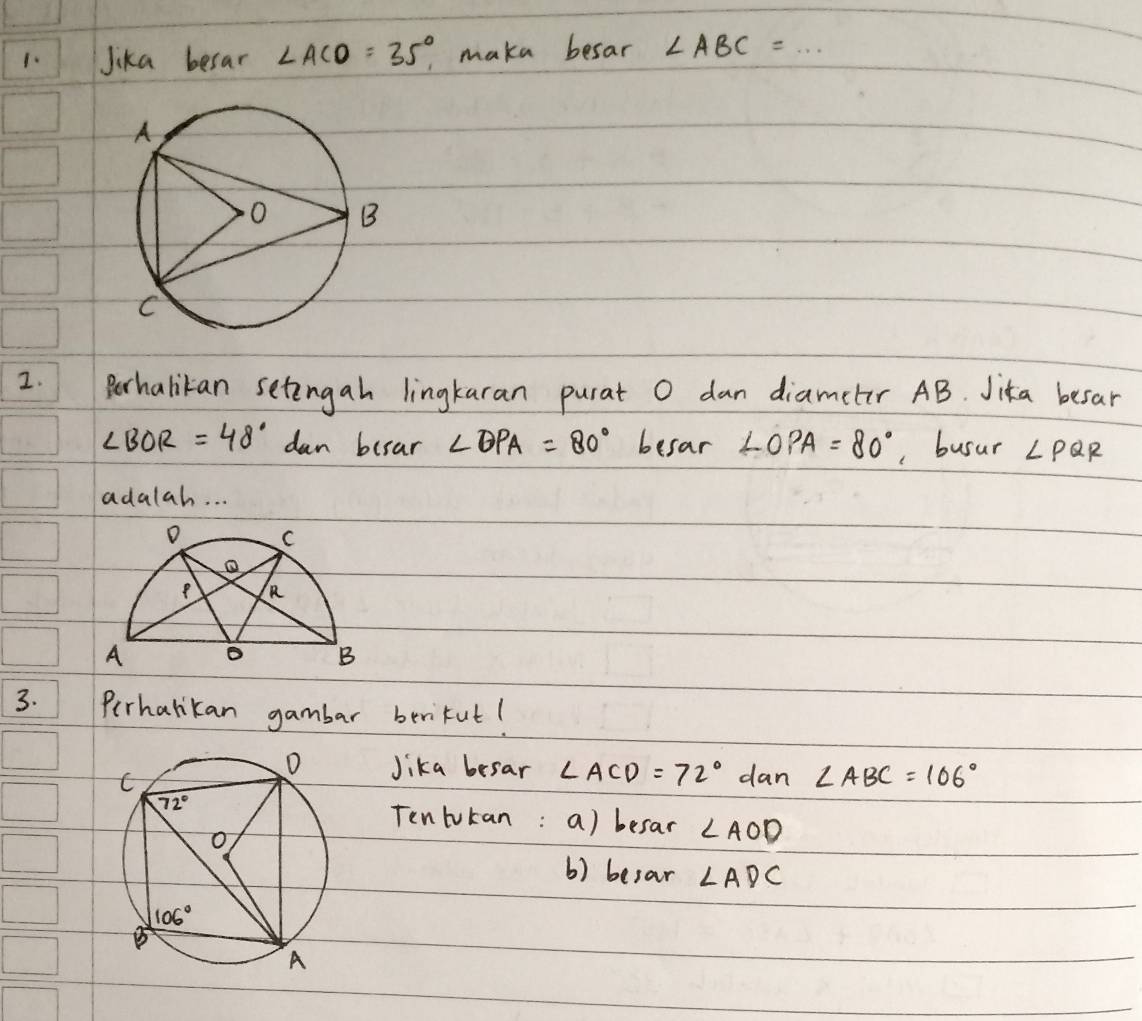 1. Jika besar ∠ACO = 35°, maka besar ∠ABC = ...
A
O
B
C
2. Perhatikan setengah lingkaran pusat O dan diameter AB. Jika besar
∠BOR = 48° dan besar ∠OPA = 80° besar ∠OPA = 80°, busur ∠PQR
adalah...
D C
Q
P R
A O B
3. Perhatikan gambar berikut!
C D Jika besar ∠ACD = 72° dan ∠ABC = 106°
72° Tentukan : a) besar ∠AOD
O b) besar ∠ADC
106°
B
A